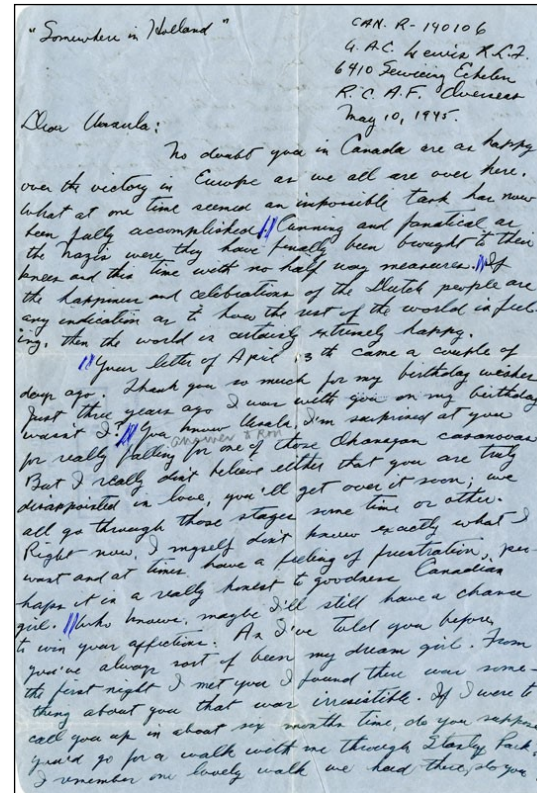 "Somewhere in Holland"
CAN. R-140106
G. A.C. Lewis R.L.F.
6410 Servicing Echelon
R. C. A. F. Overseas
May 10, 1945.
Dear Ursula:
No doubt you in Canada are as happy
over the victory in Europe as we all are over here.
What at one time seemed an impossible task has now
been fully accomplished. Cunning and fanatical as
the nazis were they have finally been brought to their
knees and this time with no half way measures. If
the happiness and celebrations of the Dutch people are
any indication as to how the rest of the world is feel-
ing, then the world is certainly extremely happy.
Your letter of April 3th came a couple of
days ago. Thank you so much for my birthday wishes
Just three years ago I was with you on my birthday
wasn't I? You know Ursula, I'm surprised at you
answer & Ron
for really falling for one of those Okanagan casanovas
But I really don't believe either that you are truly
disappointed in love, you'll get over it soon; we
all go through those stages some time or other.
Right now, I myself don't know exactly what I
want and at times have a feeling of frustration, per-
haps it is a really honest to goodness Canadian
girl. Who knows, maybe I'll still have a chance
to win your affections. As I've told you before
you've always sort of been my dream girl. From
the first night I met you I found there was some-
thing about you that was irresistible. If I were to
call you up in about six months time, do you suppose
you'd go for a walk with me through Stanly Park.
I remember one lovely walk we had there, do you